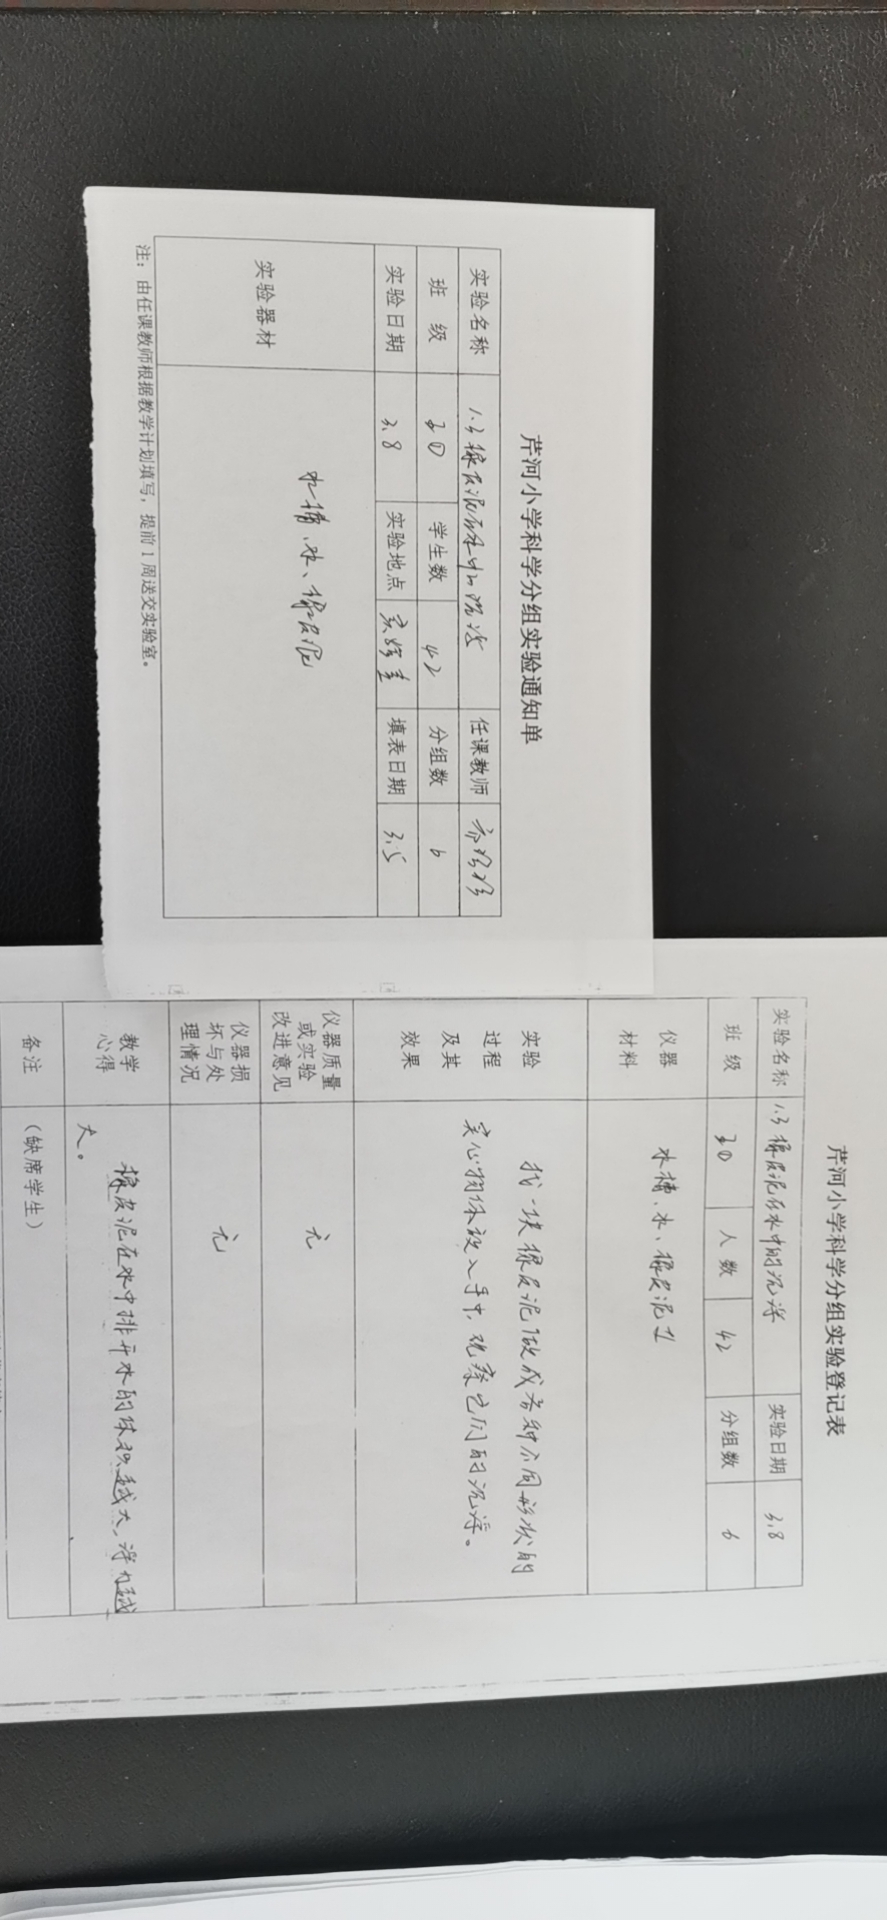 芹河小学科学分组实验通知单
实验名称 1.3橡皮泥在水中的沉浮 任课教师
班 级 学生数 42 分组数 6
实验日期 3.8 实验地点 实验室 填表日期 3.5
实验器材 水槽、水、橡皮泥
注：由任课教师根据教学计划填写，提前1周送交实验室。
芹河小学科学分组实验登记表
实验名称 1.3橡皮泥在水中的沉浮 实验日期 3.8
班 级 人 数 42 分组数 6
仪器
材料
水槽、水、橡皮泥
实验
过程
及其
效果
找一块橡皮泥做成各种不同形状的
实心物体放入手中，观察它们的沉浮。
仪器质量
或实验
改进意见
无
仪器损
坏与处
理情况
无
教学
心得
橡皮泥在水中排开水的体积越大，浮力越
大。
备注 （缺席学生）